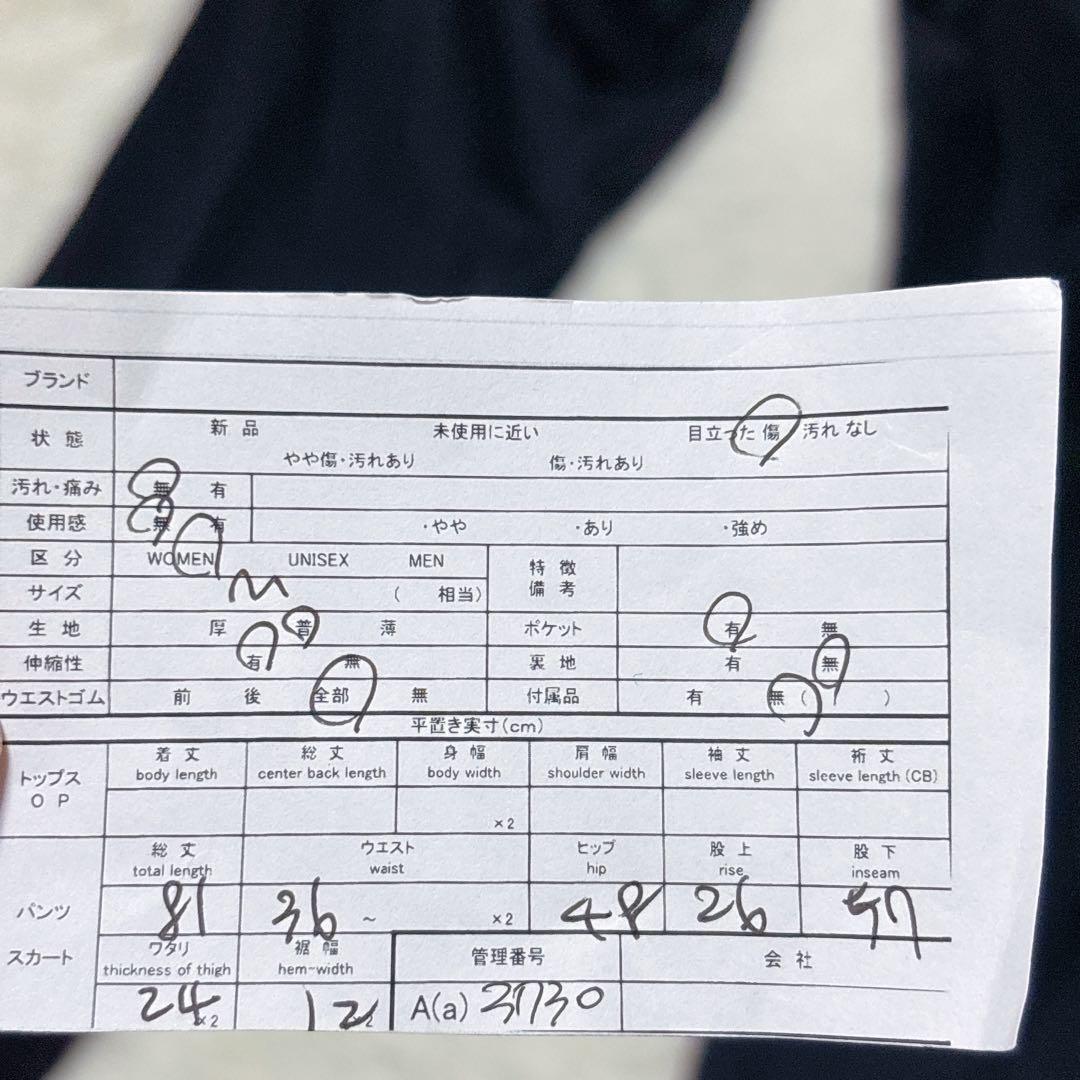 ブランド
状態 新品 未使用に近い 目立った傷 汚れ なし
やや傷・汚れあり 傷・汚れあり
汚れ・痛み 無 有
使用感 無 有 ・やや ・あり ・強め
区分 WOMEN UNISEX MEN 特徴
備考
サイズ M ( 相当)
生地 厚 普 薄 ポケット 有 無
伸縮性 有 無 裏地 有 無
ウエストゴム 前 後 全部 無 付属品 有 無 ( )
平置き実寸(cm)
トップス
OP
着丈 総丈 身幅 肩幅 袖丈 裄丈
body length center back length body width shoulder width sleeve length sleeve length (CB)
×2
総丈 ウエスト ヒップ 股上 股下
total length waist hip rise inseam
パンツ 81 36 ~ ×2 48 26 57
スカート ワタリ 裾幅 管理番号 会社
thickness of thigh hem-width
24 ×2 12 A(a) 31730